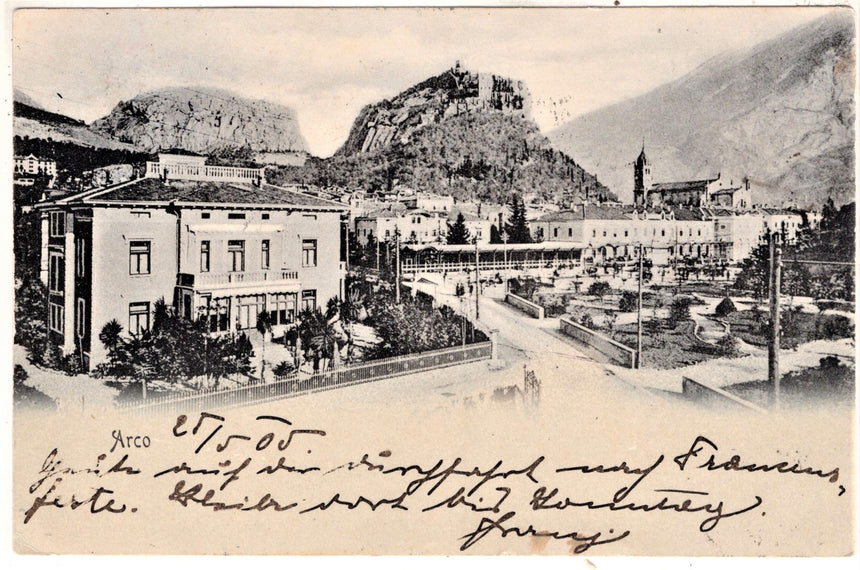 Arco
25/5 05
Grüße auf der Durchfahrt nach Franzens-
feste. Bleibe dort bis Sonntag.